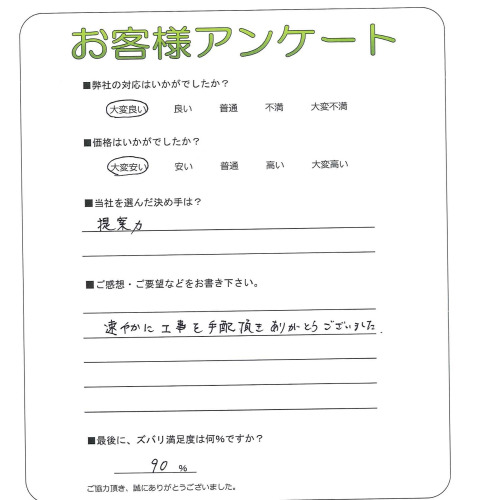 お客様アンケート
■弊社の対応はいかがでしたか？
大変良い 良い 普通 不満 大変不満
■価格はいかがでしたか？
大変安い 安い 普通 高い 大変高い
■当社を選んだ決め手は？
提案力
■ご感想・ご要望などをお書き下さい。
速やかに工事を手配頂きありがとうございました.
■最後に、ズバリ満足度は何%ですか？
90 %
ご協力頂き、誠にありがとうございました。